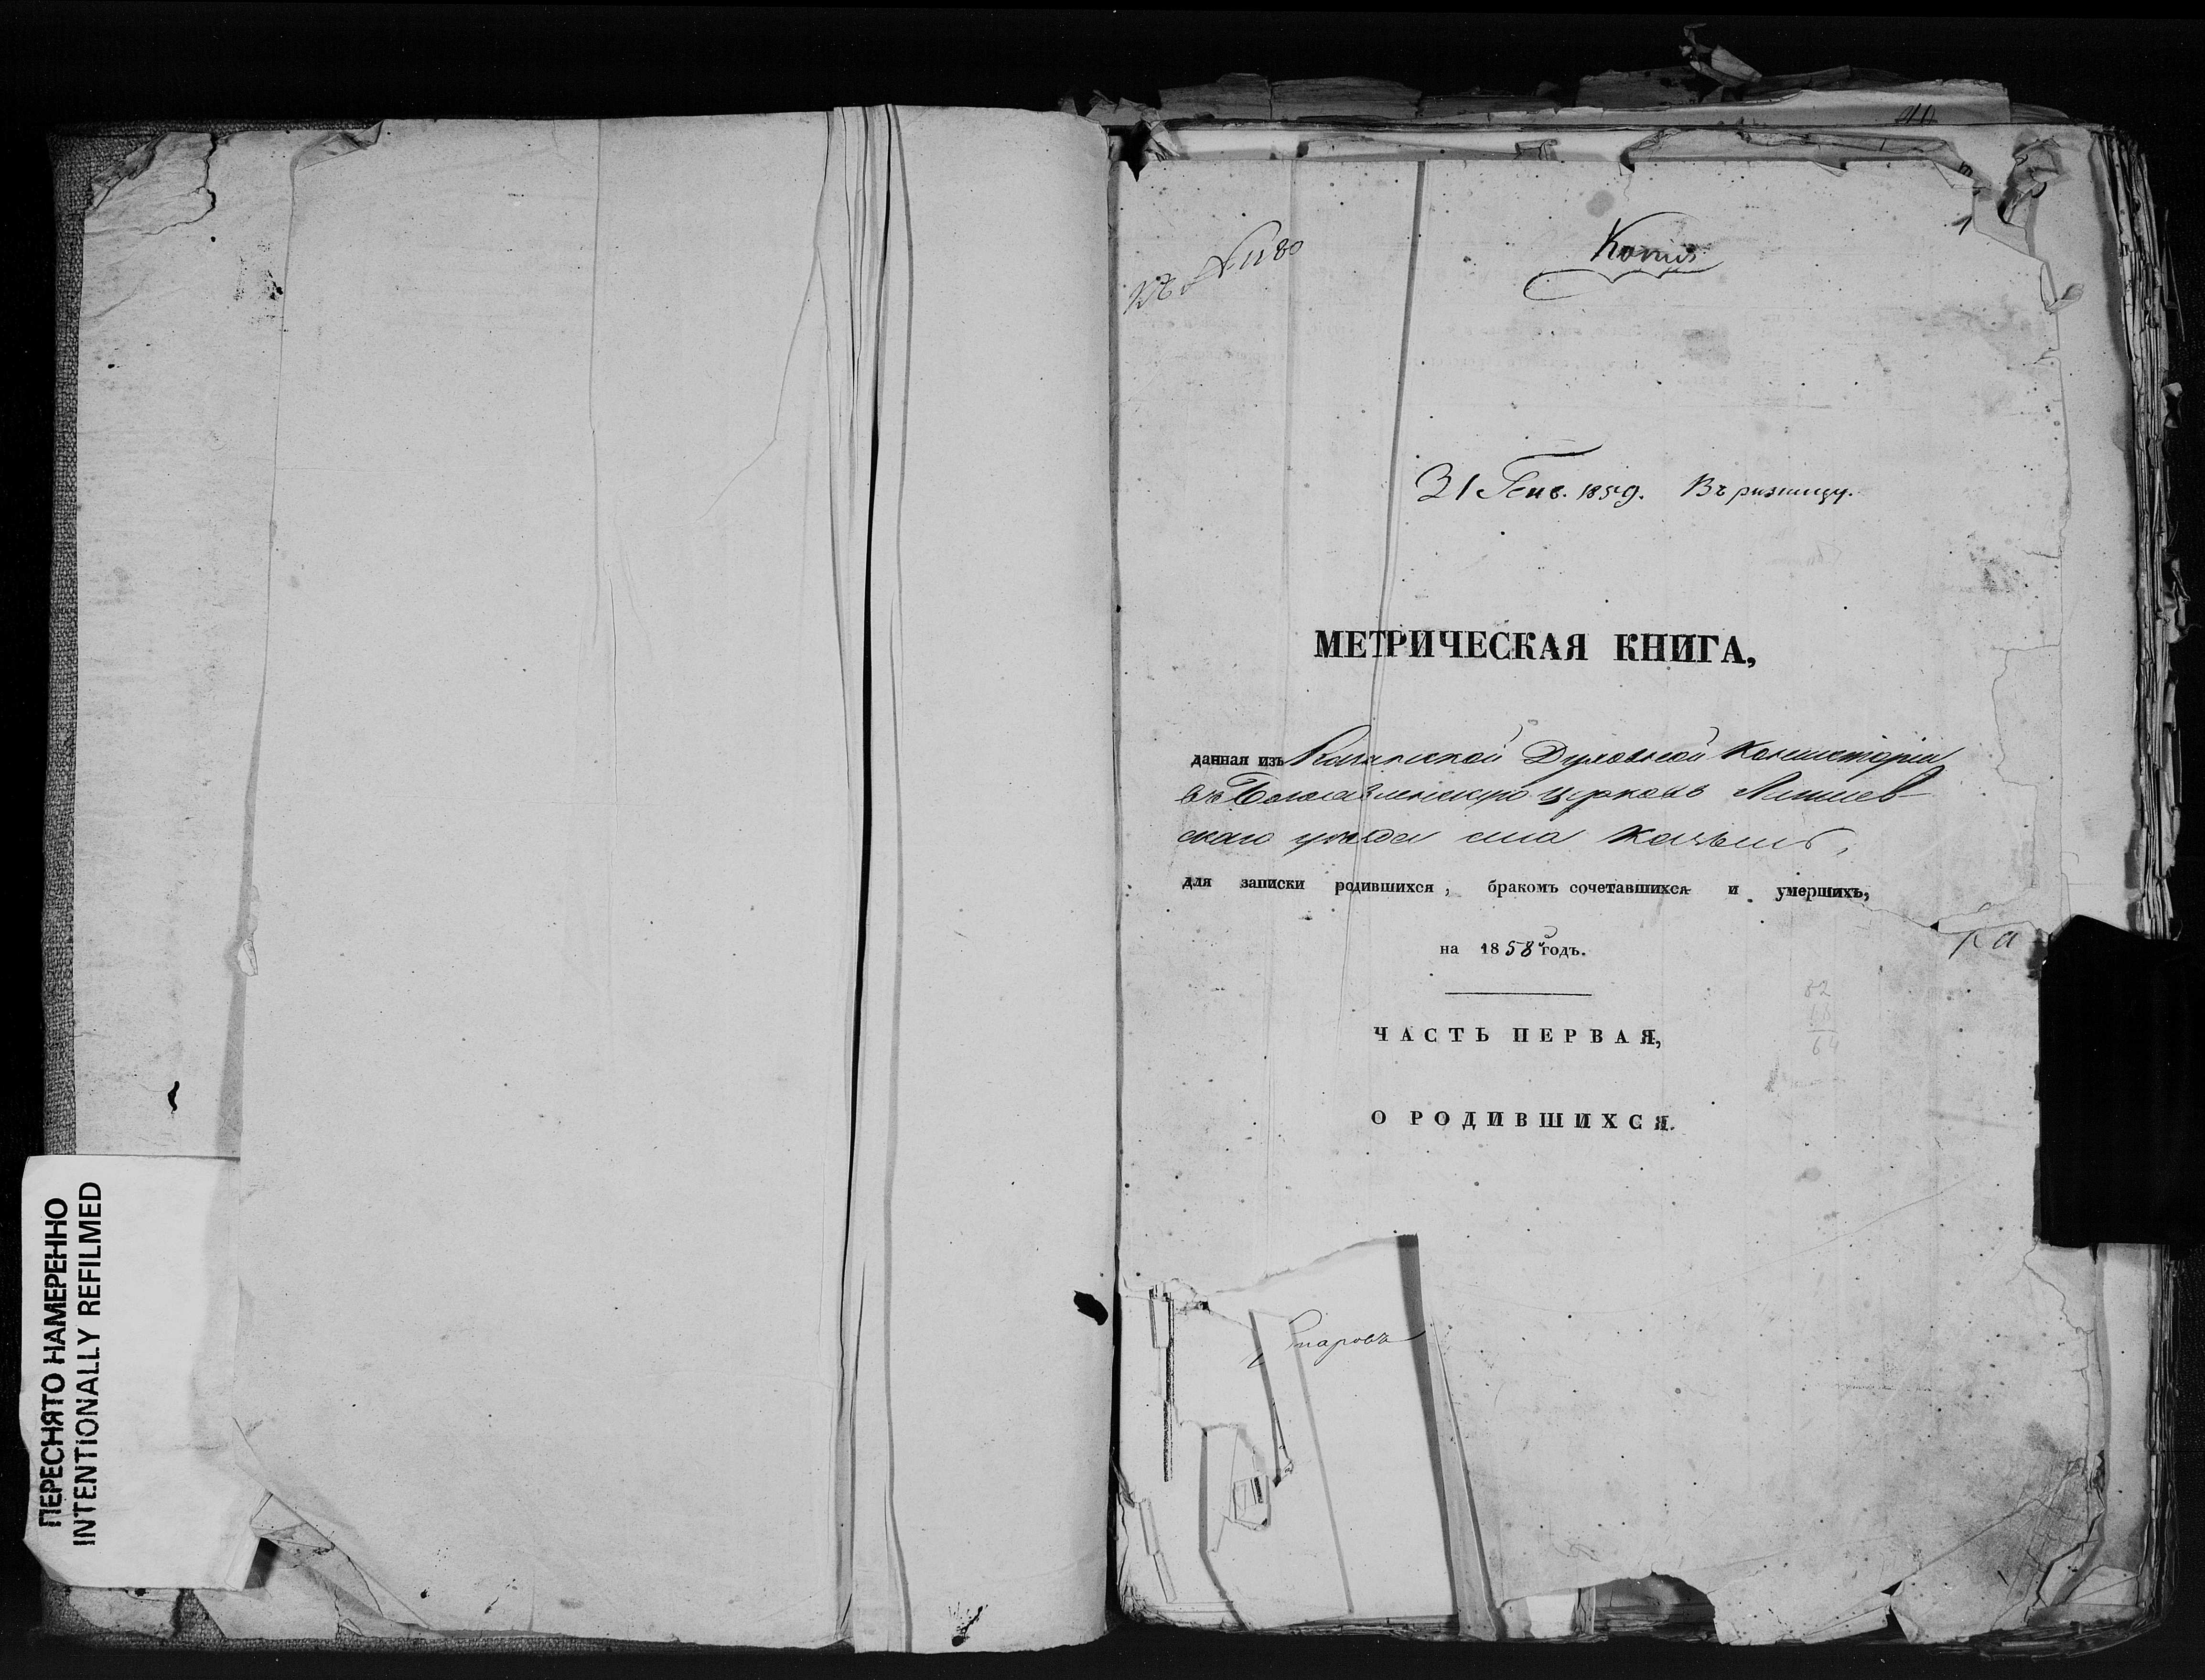 ПЕРЕСНЯТО НАМЕРЕННО
INTENTIONALLY REFILMED
къ №1180
Копия
31 Генв. 1859. Въ ризницу.
МЕТРИЧЕСКАЯ КНИГА,
данная изъ Казанской Духовной Консисторіи
въ Богоявленскую церковь Лаишев-
скаго уѣзда села
для записки родившихся, бракомъ сочетавшихся и умершихъ,
на 1858й годъ.
82
64
ЧАСТЬ ПЕРВАЯ,
О РОДИВШИХСЯ.